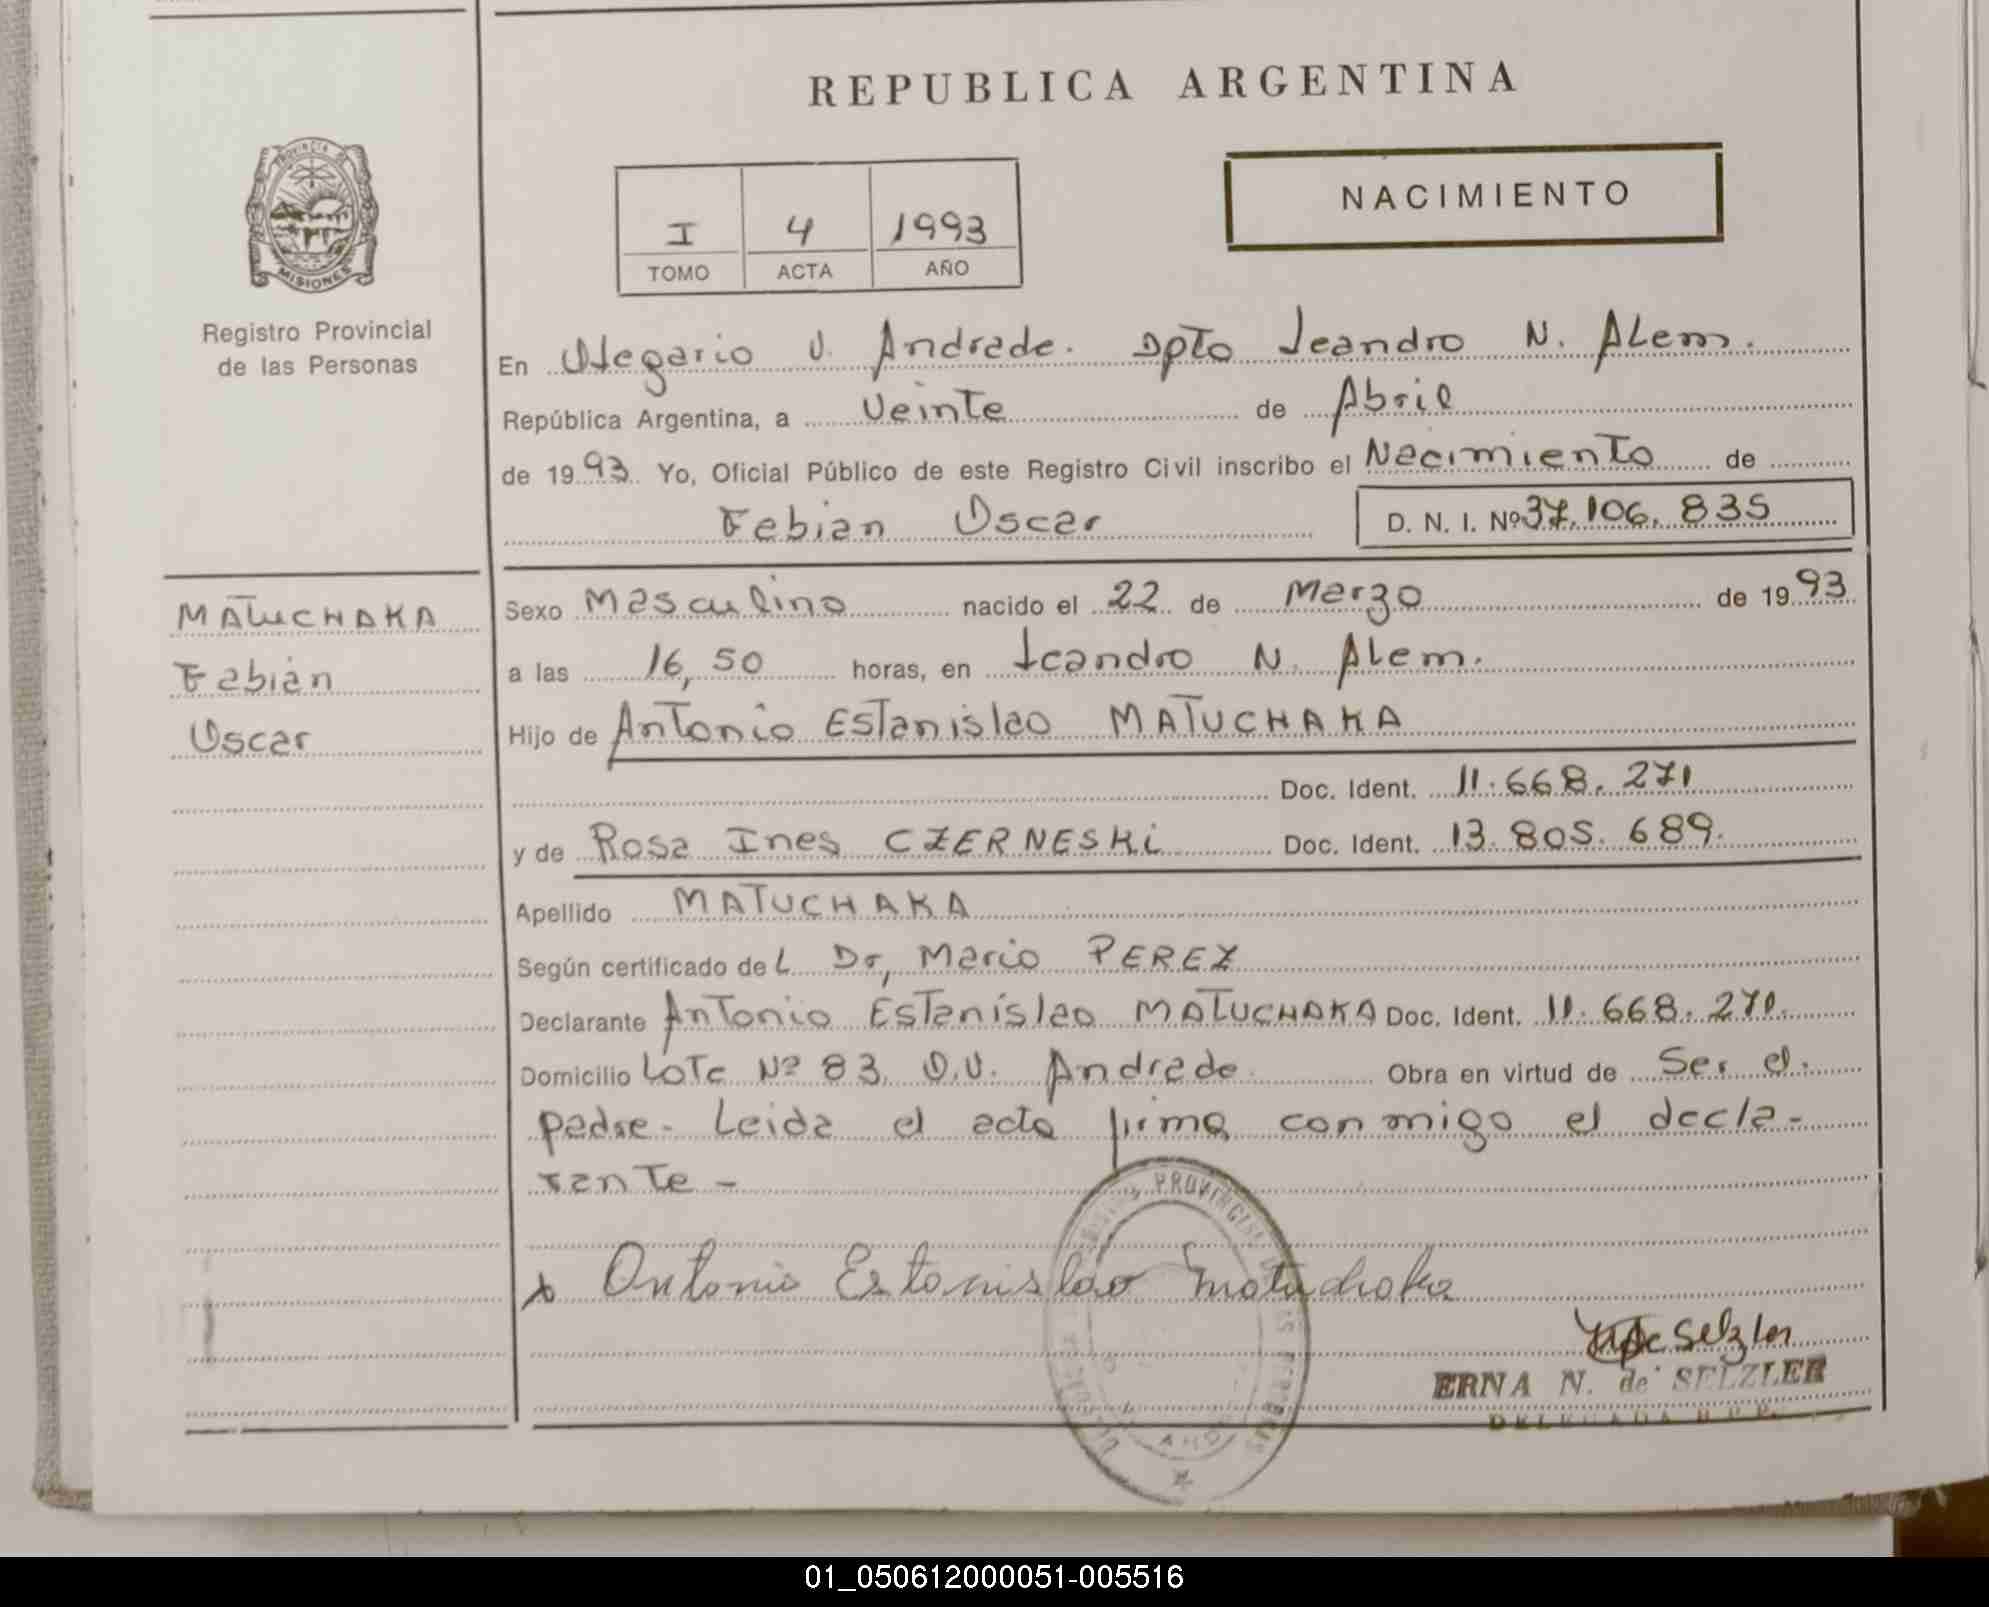 REPUBLICA ARGENTINA
PROVINCIA DE MISIONES
Registro Provincial
de las Personas
NACIMIENTO
I 4 1993
TOMO ACTA AÑO
En Olegario V. Andrade. Dpto Leandro N. Alem.
República Argentina, a Veinte de Abril
de 1993 Yo, Oficial Público de este Registro Civil inscribo el Nacimiento de
Fabian Oscar D. N. I. Nº 37.106.835
MATUCHAKA
Fabián
Oscar
Sexo Masculino nacido el 22 de Marzo de 1993
a las 16,50 horas, en Leandro N. Alem.
Hijo de Antonio Estanislao MATUCHAKA
Doc. Ident. 11.668.271
y de Rosa Ines CZERNESKi Doc. Ident. 13.805.689.
Apellido MATUCHAKA
Según certificado del Dr, Mario PEREZ
Declarante Antonio Estanislao MATUCHAKA Doc. Ident. 11.668.271.
Domicilio Lote Nº 83 O.V. Andrade Obra en virtud de Ser el
padre- Leida el acta firma conmigo el decla-
rante-
Antonio Estanislao Matuchaka
de Selzler
ERNA N. de SELZLER
DELEGADA R.P.P.
01_050612000051-005516